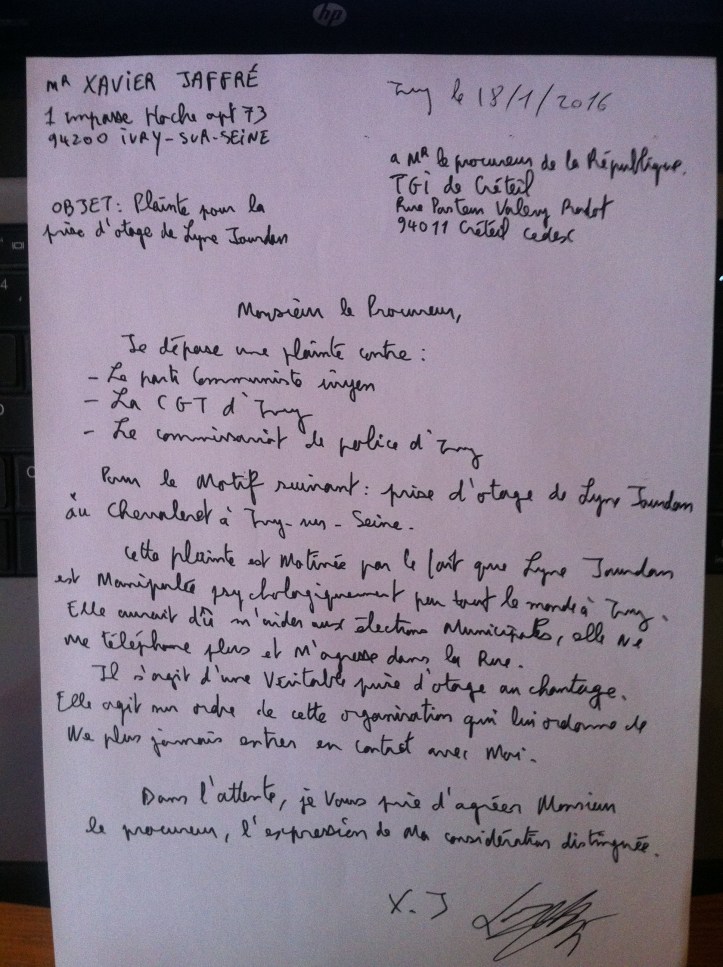 hp
MR XAVIER JAFFRÉ
1 impasse Hoche apt 73
94200 IVRY-SUR-SEINE
Ivry le 18/1/2016
a MR le procureur de la République.
TGI de Créteil
Rue Pasteur Valery Radot
94011 Créteil cedex
OBJET: Plainte pour la
prise d'otage de Lyne Jourdan
Monsieur le Procureur,
Je dépose une plainte contre:
- Le parti Communiste ivryen
- La CGT d'Ivry
- Le commissariat de police d'Ivry
Pour le Motif suivant: prise d'otage de Lyne Jourdan
au Chevaleret à Ivry-sur-Seine.
Cette plainte est Motivée par le fait que Lyne Jourdan
est Manipulée psychologiquement par tout le monde à Ivry.
Elle aurait dû m'aider aux élections Municipales, elle Ne
me téléphone plus et M'agresse dans la Rue.
Il s'agit d'une Véritable prise d'otage au chantage.
Elle agit sur ordre de cette organisation qui lui ordonne de
Ne plus jamais entrer en contact avec Moi.
Dans l'attente, je Vous prie d'agréer Monsieur
le procureur, l'expression de Ma considération distinguée.
X.J